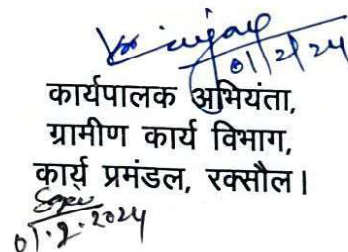 01/2/24
कार्यपालक अभियंता,
ग्रामीण कार्य विभाग,
कार्य प्रमंडल, रक्सौल।
01.2.2024